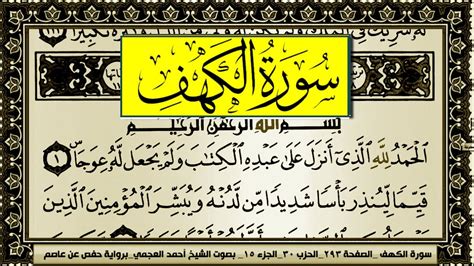 سُورَةُ الكَهْفِ
بِسْمِ اللَّهِ الرَّحْمَٰنِ الرَّحِيمِ
الْحَمْدُ لِلَّهِ الَّذِي أَنزَلَ عَلَىٰ عَبْدِهِ الْكِتَابَ وَلَمْ يَجْعَل لَّهُ عِوَجًا ١
قَيِّمًا لِّيُنذِرَ بَأْسًا شَدِيدًا مِّن لَّدُنْهُ وَيُبَشِّرَ الْمُؤْمِنِينَ الَّذِينَ
سورة الكهف _ الصفحة ٢٩٣ _ الحزب ٣٠ _ الجزء ١٥ _ بصوت الشيخ أحمد العجمي _ برواية حفص عن عاصم